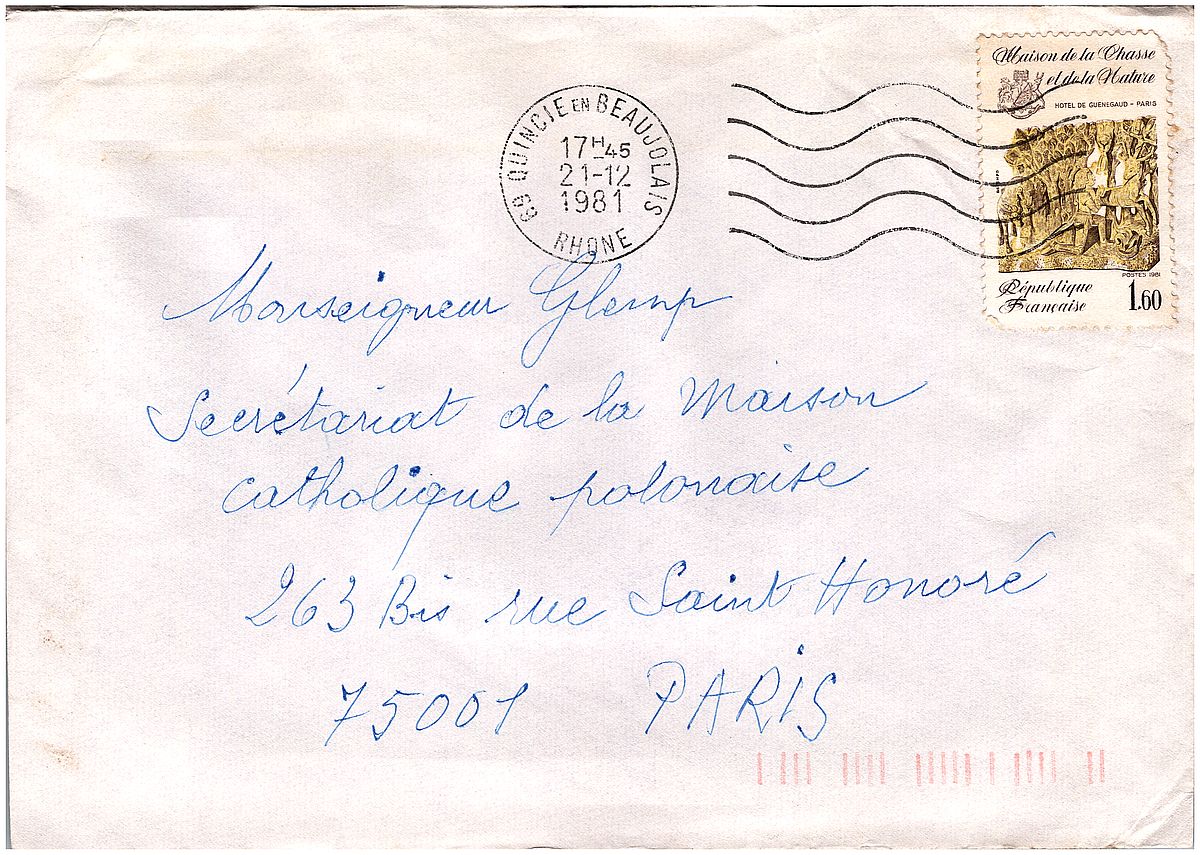 Maison de la Chasse
et de la Nature
HOTEL DE GUENEGAUD - PARIS
POSTES 1981
République
Française
1.60
69 QUINCIE EN BEAUJOLAIS
17H-45
21-12
1981
RHONE
Monseigneur Glemp
Secrétariat de la Maison
catholique polonaise
263 Bis rue Saint Honoré
75001 PARIS